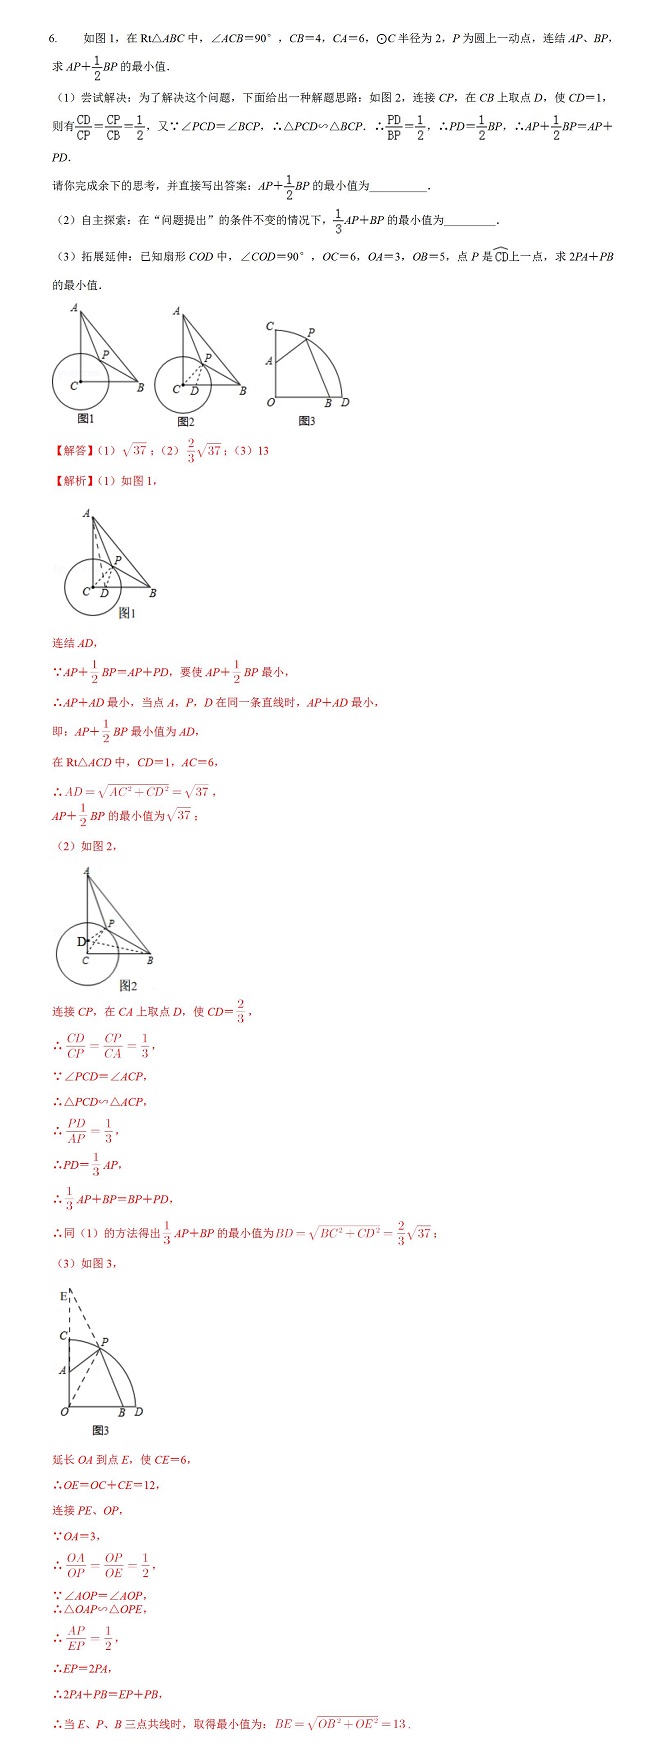 6. 如图1，在Rt△ABC中，∠ACB＝90°，CB＝4，CA＝6，⊙C半径为2，P为圆上一动点，连结AP、BP，
求AP＋1/2BP的最小值．
（1）尝试解决：为了解决这个问题，下面给出一种解题思路：如图2，连接CP，在CB上取点D，使CD＝1，
则有CD/CP＝CP/CB＝1/2，又∵∠PCD＝∠BCP，∴△PCD∽△BCP．∴PD/BP＝1/2，∴PD＝1/2BP，∴AP＋1/2BP＝AP＋
PD．
请你完成余下的思考，并直接写出答案：AP＋1/2BP的最小值为__________．
（2）自主探索：在“问题提出”的条件不变的情况下，1/3AP＋BP的最小值为_________．
（3）拓展延伸：已知扇形COD中，∠COD＝90°，OC＝6，OA＝3，OB＝5，点P是CD上一点，求2PA＋PB
的最小值．
A
P
C
B
图1
A
P
C D B
图2
C
P
A
O B D
图3
【解答】（1）√37；（2）2/3√37；（3）13
【解析】（1）如图1，
A
P
C D B
图1
连结AD，
∵AP＋1/2BP＝AP＋PD，要使AP＋1/2BP最小，
∴AP＋AD最小，当点A，P，D在同一条直线时，AP＋AD最小，
即：AP＋1/2BP最小值为AD，
在Rt△ACD中，CD＝1，AC＝6，
∴AD＝√(AC²＋CD²)＝√37，
AP＋1/2BP的最小值为√37；
（2）如图2，
A
P
D
C B
图2
连接CP，在CA上取点D，使CD＝2/3，
∴CD/CP＝CP/CA＝1/3，
∵∠PCD＝∠ACP，
∴△PCD∽△ACP，
∴PD/AP＝1/3，
∴PD＝1/3AP，
∴1/3AP＋BP＝BP＋PD，
∴同（1）的方法得出1/3AP＋BP的最小值为BD＝√(BC²＋CD²)＝2/3√37；
（3）如图3，
E
C
P
A
O B D
图3
延长OA到点E，使CE＝6，
∴OE＝OC＋CE＝12，
连接PE、OP，
∵OA＝3，
∴OA/OP＝OP/OE＝1/2，
∵∠AOP＝∠AOP，
∴△OAP∽△OPE，
∴AP/EP＝1/2，
∴EP＝2PA，
∴2PA＋PB＝EP＋PB，
∴当E、P、B三点共线时，取得最小值为：BE＝√(OB²＋OE²)＝13．